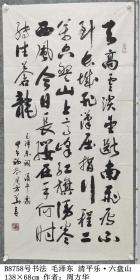 天高雲淡望断南飛雁不
到长城非好汉屈指行程二
万六盘山上高峰红旗漫卷
西风今日长缨在手何时
缚住苍龙
B8758号书法 毛泽东 清平乐·六盘山
138×68cm 作者：周方华